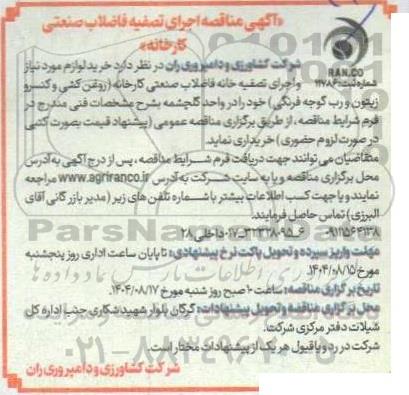 «آگهی مناقصه اجرای تصفیه فاضلاب صنعتی
کارخانه»
RAN.CO
شماره ثبت: ۱۱۷۸۶
شرکت کشاورزی و دامپروری ران در نظر دارد خرید لوازم مورد نیاز
و اجرای تصفیه خانه فاضلاب صنعتی کارخانه (روغن کشی و کنسرو
زیتون و رب گوجه فرنگی) خود را در واحد گلچشمه بشرح مشخصات فنی مندرج در
فرم شرایط مناقصه، از طریق برگزاری مناقصه عمومی (پیشنهاد قیمت بصورت کتبی
در صورت لزوم حضوری) خریداری نماید.
متقاضیان می توانند جهت دریافت فرم شرایط مناقصه، پس از درج آگهی به آدرس
محل برگزاری مناقصه و یا به سایت شرکت به آدرس www.agriranco.ir مراجعه
نمایند و یا جهت کسب اطلاعات بیشتر با شماره تلفن های زیر (مدیر بازرگانی آقای
البرزی) تماس حاصل فرمایند.
۰۹۱۱۵۶۴۱۳۸ ۶_۰۱۷-۳۲۳۲۸۰۹۵ داخلی ۲۸
مهلت واریز سپرده و تحویل پاکت نرخ پیشنهادی: تا پایان ساعت اداری روز پنجشنبه
مورخ ۱۴۰۴/۰۸/۱۵.
تاریخ برگزاری مناقصه: ساعت ۱۰ صبح روز شنبه مورخ ۱۴۰۴/۰۸/۱۷.
محل برگزاری مناقصه و تحویل پیشنهادات: گرگان بلوار شهید شکاری جنب اداره کل
شیلات دفتر مرکزی شرکت.
شرکت در رد و یا قبول هر یک از پیشنهادات مختار است.
شرکت کشاورزی و دامپروری ران
ParsNamadData
۰۲۱-۸۸۳۴۹۶۷۰